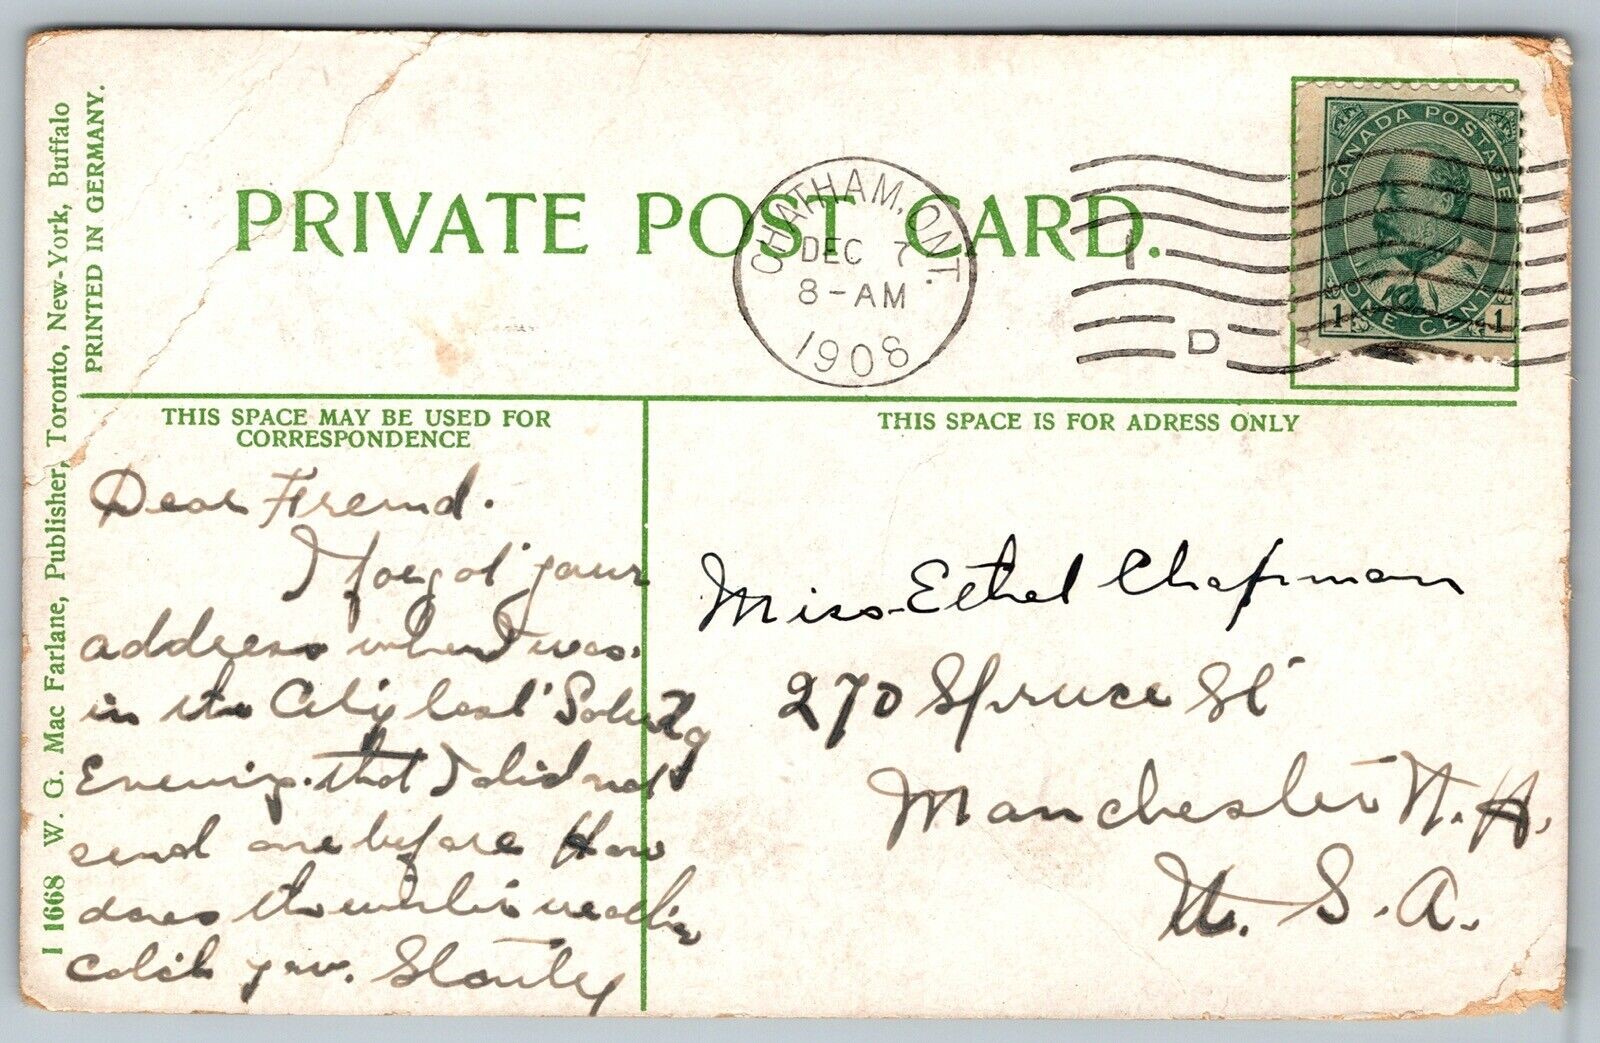 I 1668 W. G. Mac Farlane, Publisher, Toronto, New-York, Buffalo
PRINTED IN GERMANY.
PRIVATE POST CARD.
CHATHAM, ONT.
DEC 7
8-AM
1908
D
CANADA POSTAGE
1 ONE CENT 1
THIS SPACE MAY BE USED FOR
CORRESPONDENCE
THIS SPACE IS FOR ADRESS ONLY
Dear Freind.
I forgot your
address when I was
in the City last
Evening. that I did not
send one before How
does the winter weather
catch you. Stanley
Miss Ethel Chapman
270 Spruce St
Manchester N.H.
U.S.A.